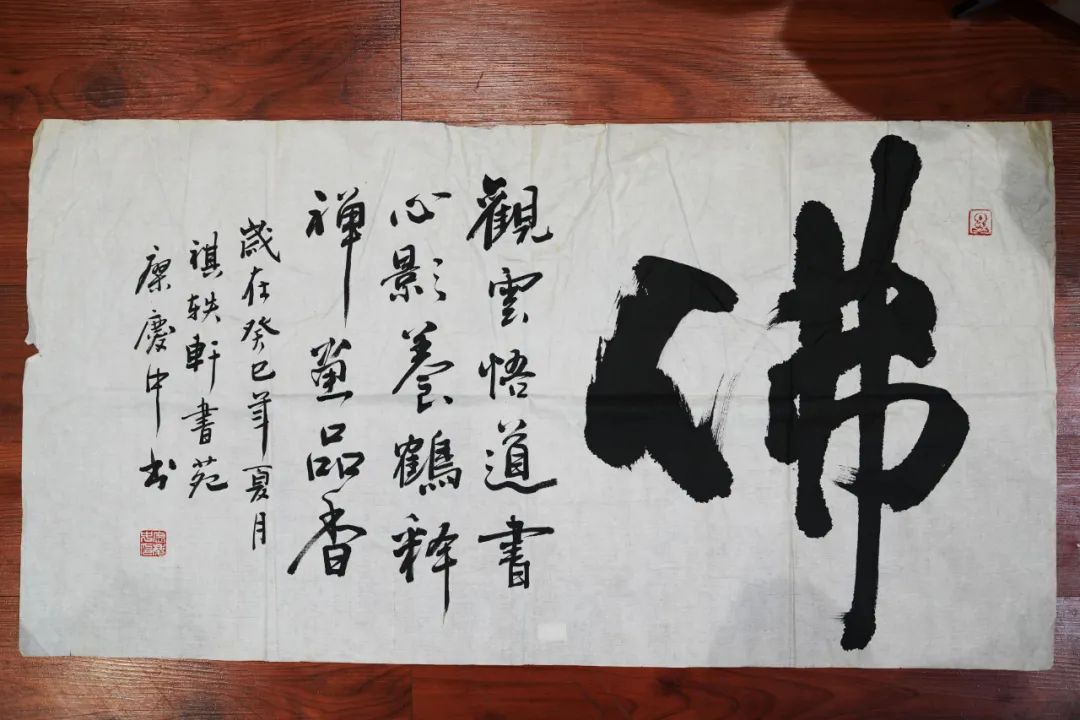 佛
觀雲悟道書
心影養鶴釋
禅品香
歲在癸巳年夏月
祺轶軒書苑
慶中书